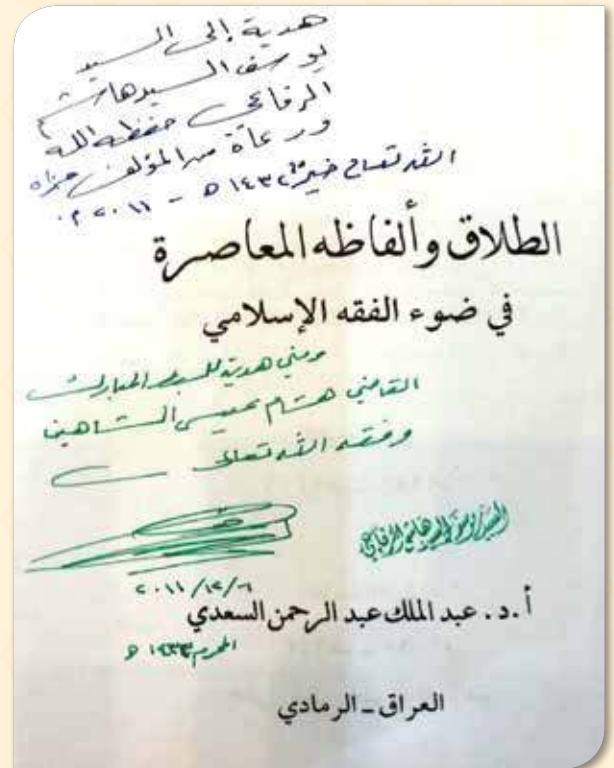 هدية إلى السيد
يوسف السيد هاشم
الرفاعي حفظه الله
ورعاه من المؤلف جزاه
الله تعالى خير ١٤٣٢ هـ - ٢٠١١ م.
الطلاق وألفاظه المعاصرة
في ضوء الفقه الإسلامي
ومني هدية للسبط المبارك
القاضي هشام عيسى الشاهين
وفقه الله تعالى
السيد يوسف السيد هاشم الرفاعي
٢٠١١/١٢/٦
أ.د. عبد الملك عبد الرحمن السعدي
المحرم ١٤٣٣ هـ
العراق ـ الرمادي